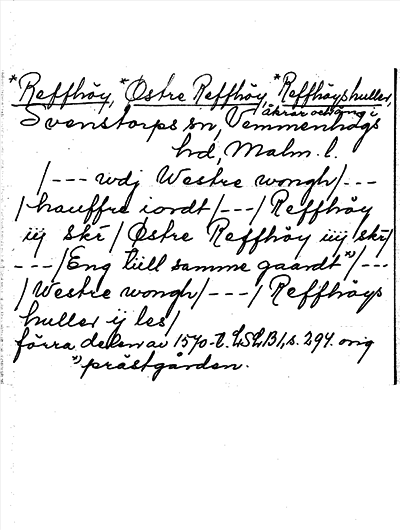 *Reffhöy, *Østre Reffhöy, *Reffhöyshuller,
åkrar och äng i
Svenstorps sn, Vemmenhögs
hd, Malm. l.
/--- wdj Westre wongh/---
/hauffre iordt/---/Reffhöy
iij skr̄/Østre Reffhöy iiij skr̄/
---/Eng till samme gaardt*)/---
/Westre wongh/---/Reffhöys
huller ij les/
förra delen av 1570-t. LSLB 1, s. 294. orig
*) prästgården.